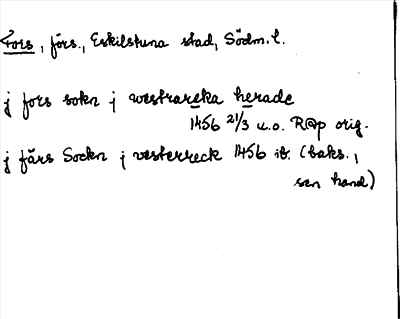 Fors, förs., Eskilstuna stad, Södm. l.
j fors sokn j westrareka herade
1456 21/3 u.o. R@p orig.
j färs Sockn j vesterreck 1456 ib. (baks.,
sen hand)